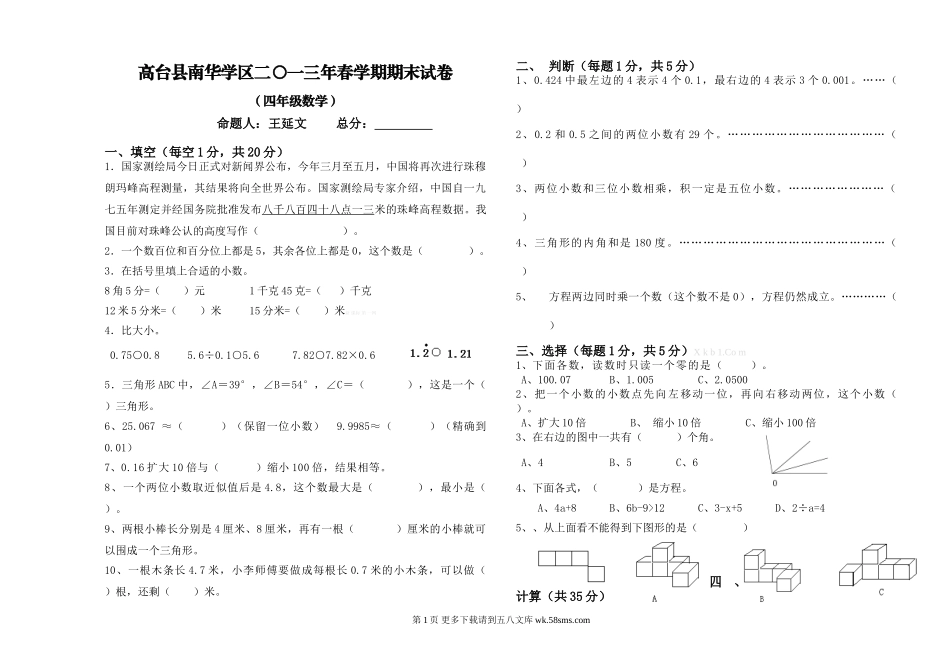 高台县南华学区二〇一三年春学期期末试卷
（四年级数学）
命题人：王延文 总分：
一、填空（每空1分，共20分）
1．国家测绘局今日正式对新闻界公布，今年三月至五月，中国将再次进行珠穆
朗玛峰高程测量，其结果将向全世界公布。国家测绘局专家介绍，中国自一九
七五年测定并经国务院批准发布八千八百四十八点一三米的珠峰高程数据。我
国目前对珠峰公认的高度写作（ ）。
2．一个数百位和百分位上都是5，其余各位上都是0，这个数是（ ）。
3．在括号里填上合适的小数。
8角5分=（ ）元 1千克45克=（ ）千克
12米5分米=（ ）米 15分米=（ ）米
4．比大小。
0.75○0.8 5.6÷0.1○5.6 7.82○7.82×0.6 1.2̇○ 1.21
5．三角形ABC中，∠A＝39°，∠B＝54°，∠C＝（ ），这是一个（
）三角形。
6、25.067 ≈（ ）（保留一位小数） 9.9985≈（ ）（精确到
0.01）
7、0.16扩大10倍与（ ）缩小100倍，结果相等。
8、一个两位小数取近似值后是4.8，这个数最大是（ ），最小是（
）。
9、两根小棒长分别是4厘米、8厘米，再有一根（ ）厘米的小棒就可
以围成一个三角形。
10、一根木条长4.7米，小李师傅要做成每根长0.7米的小木条，可以做（
）根，还剩（ ）米。
二、 判断（每题1分，共5分）
1、0.424中最左边的4表示4个0.1，最右边的4表示3个0.001。……（
）
2、0.2和0.5之间的两位小数有29个。…………………………………（
）
3、两位小数和三位小数相乘，积一定是五位小数。……………………（
）
4、三角形的内角和是180度。……………………………………………（
）
5、 方程两边同时乘一个数（这个数不是0），方程仍然成立。…………（
）
三、选择（每题1分，共5分）XkbI.Com
1、下面各数，读数时只读一个零的是（ ）。
A、100.07 B、1.005 C、2.0500
2、把一个小数的小数点先向左移动一位，再向右移动两位，这个小数（
）。
A、扩大10倍 B、 缩小10倍 C、缩小100倍
3、在右边的图中一共有（ ）个角。
A、4 B、5 C、6
0
4、下面各式，（ ）是方程。
A、4a+8 B、6b-9>12 C、3-x+5 D、2÷a=4
5、、从上面看不能得到下图形的是（ ）
四 、
计算（共35分） A B C
第1页 更多下载请到五八文库wk.58sms.com